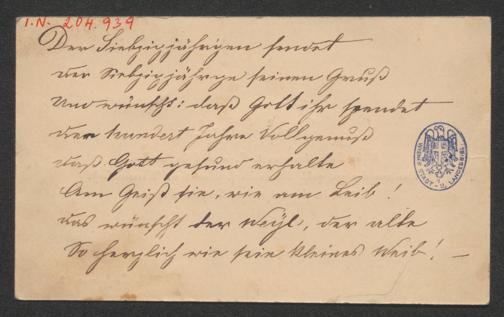 I.N. 204.939
Der Siebzigjährigen sendet
der Siebzigjährge seinen Gruß
Und wünscht: daß Gott ihr spendet
der hundert Jahre Vollgenuß
daß Gott gesund erhalte
Am Geist sie, wie am Leib!
das wünscht der Weyl, der alte
So herzlich wie sein kleines Weib! —